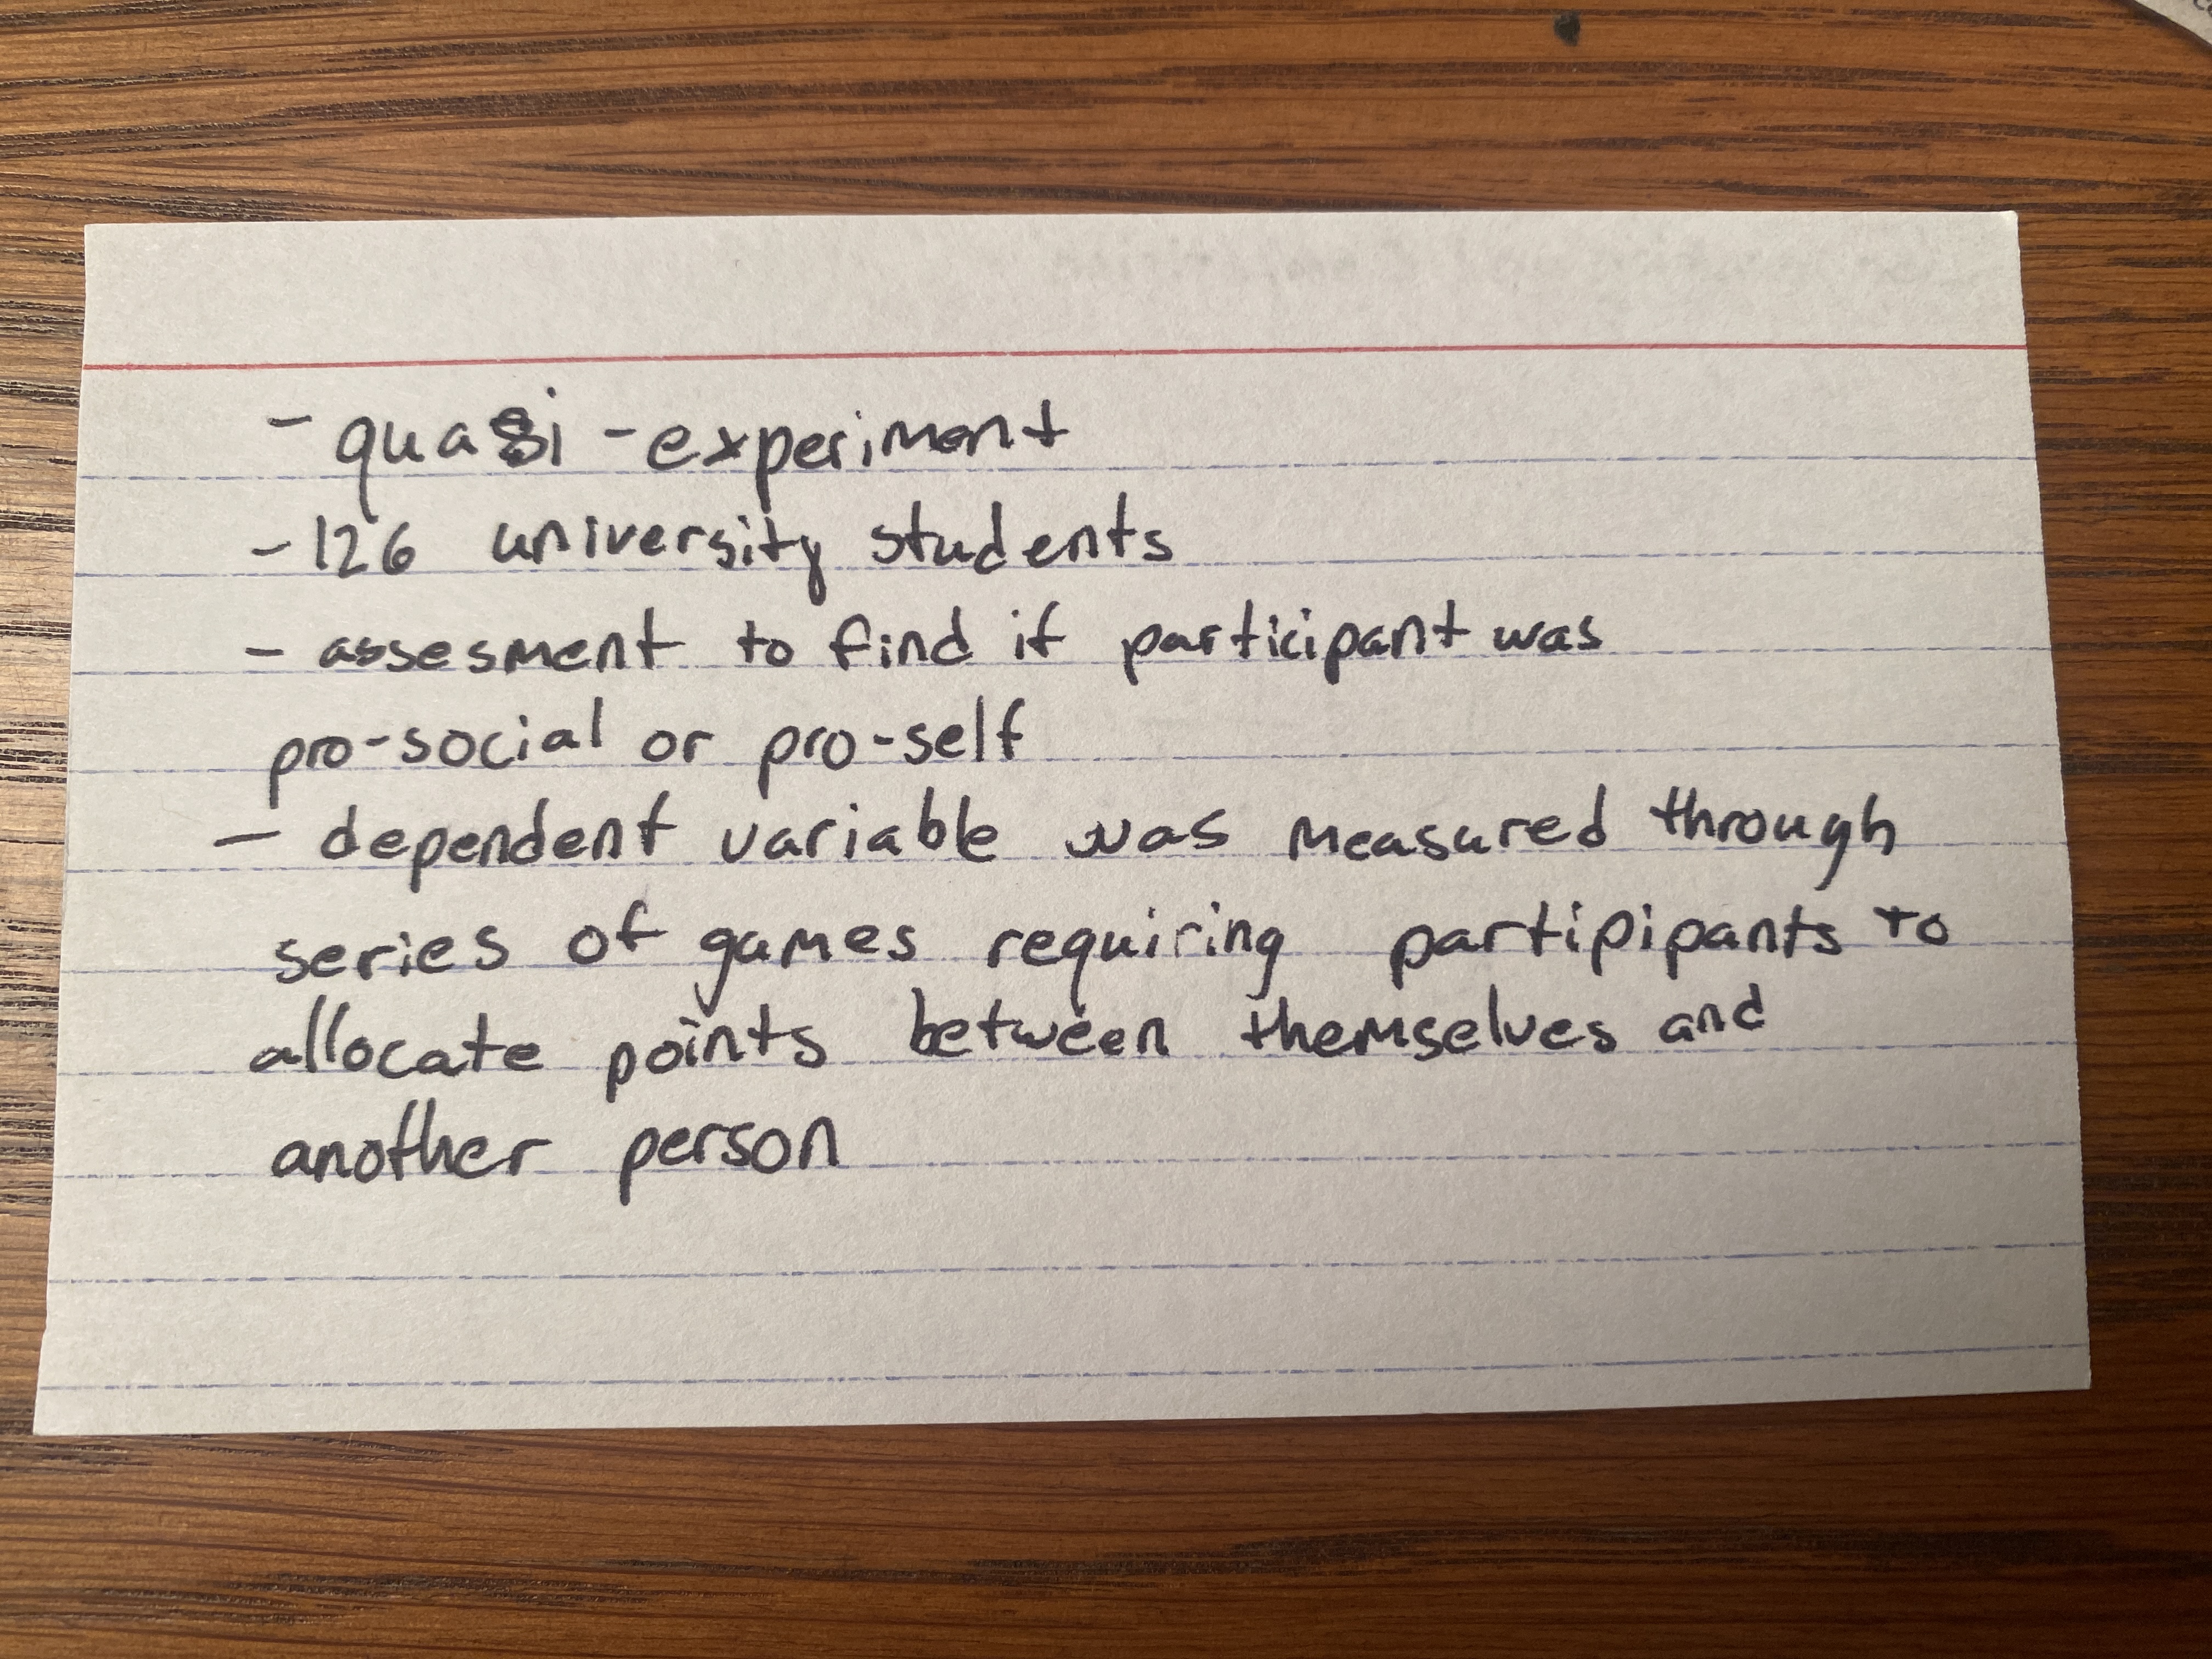 - quasi-experiment
- 126 university students
- assesment to find if participant was
pro-social or pro-self
- dependent variable was measured through
series of games requiring partipipants to
allocate points between themselves and
another person